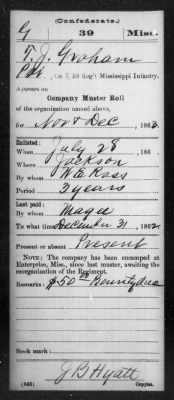 (Confederate.)
G 39 Miss.
T. J. Graham
Pvt., Co. I, 39 Reg't Mississippi Infantry.
Appears on
Company Muster Roll
of the organization named above,
for Nov & Dec, 1862.
Enlisted:
When July 28, 186
Where Jackson
By whom W E Ross
Period 3 years
Last paid:
By whom Magee
To what time December 31, 1862.
Present or absent Present
NOTE: The company has been encamped at
Enterprise, Miss., since last muster, awaiting the
reorganization of the Regiment.
Remarks: $50 00 Bounty due
Book mark:
J B Hyatt
(642) Copyist.